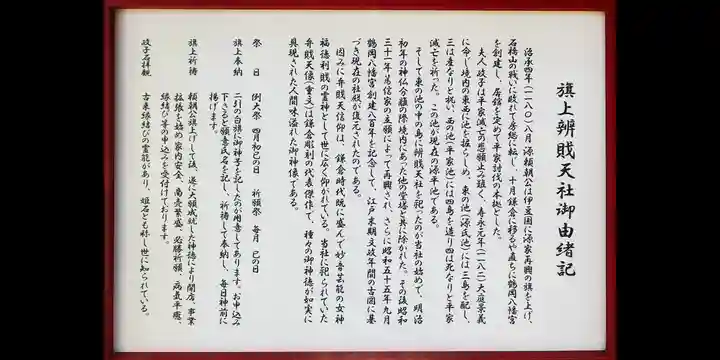 旗上辨財天社御由緒記
治承四年(一一八〇)八月 源頼朝公は伊豆国に源家再興の旗を上げ、
石橋山の戦いに敗れて房総に転じ、十月鎌倉に移るや直ちに鶴岡八幡宮
を創建し、居館を定めて平家討伐の本拠とした。
夫人政子は平家滅亡の悲願止み難く、寿永元年(一一八二)大庭景義
に命じ境内の東西に池を掘らしめ、東の池(源氏池)には三島を配し、
三は産なりと祝い、西の池(平家池)には四島を造り四は死なりと平家
滅亡を祈った。この池が現在の源平池である。
そして東の池の中の島に辨財天社を祀ったのが当社の始めで、明治
初年の神仏分離の際境内にあった他の堂塔と共に除かれた。その後昭和
三十一年篤信家の立願によって再興され、さらに昭和五十五年九月
鶴岡八幡宮創建八百年を記念して、江戸末期文政年間の古図に基
づき現在の社殿が復元されたのである。
因みに弁財天信仰は、鎌倉時代既に盛んで妙音芸能の女神
福徳利財の霊神として世に広く仰がれている。当社に祀られていた
弁財天像(重文)は鎌倉彫刻の代表傑作で、種々の御神徳が如実に
具現された人間味溢れた御神像である。
祭 日 例大祭 四月初巳の日 祈願祭 毎月 巳の日
旗上奉納 二引の白旗に御神号を記したのが用意してあります。お申込み
下さると願意氏名を記し、祈祷して奉納し、毎日神前に
掲げます。
旗上祈祷 頼朝公旗上げして後、遂に大願成就した神徳により開店、事業
拡張を始め家内安全、商売繁盛、必勝祈願、病気平癒、
縁結び等の申込みを受付けております。
政子石拝観 古来縁結びの霊能があり、姫石とも称し世に知られている。